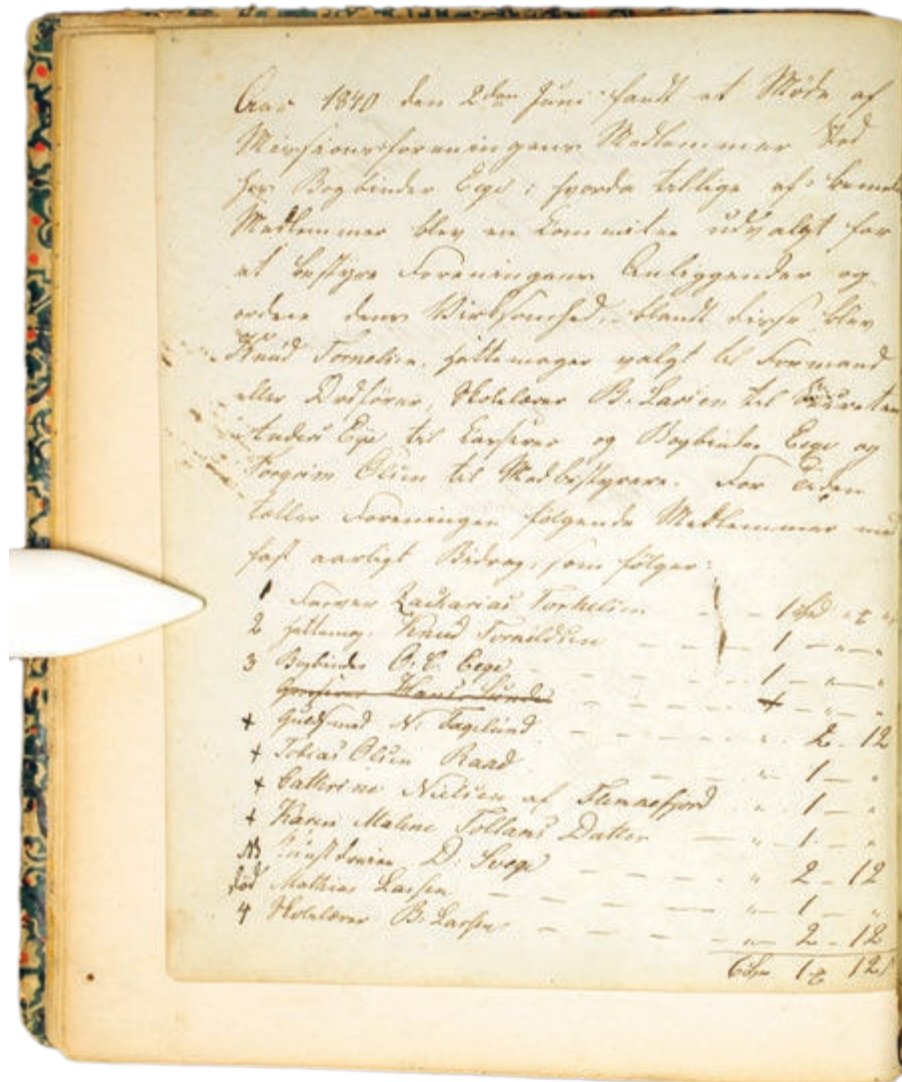 Aar 1840 den 2den Juni fandt et Möde af
Missionsforeningens Medlemmer Sted
hos Bogbinder Eege; hvorda tillige af
Medlemmer blev en Committee udvalgt for
at bestyre Foreningens Anliggender og
ordne dens Virksomhed, blandt disse blev
Knud hattemager valgt til Formand
eller Ordförer, Skolelærer B. Larsen til
til Casserer og Bogbinder Eege og
Torgrim Olsen til Medbestyrere. For Tiden
tæller Foreningen følgende Medlemmer med
fast aarligt Bidrag, som følger:
1 Farver Zacharias Torkelsen - - 1
2 hattemag. Knud - - 1 - -
3 Bogbinder O. C. Eege - - 1 - -
Hans
+ Guldsmed N. Fagelund - - 2 - 12
+ Tobias Olsen Raad - - 1 -
+ Cathrine Nielsen af Flekkefjord 1 -
+ Karen Malene Tollags Datter - 1 -
D. - 2 - 12
död Mathias Larsen - - 1 -
4 Skolelærer B. Larsen - - 2 - 12
1 12